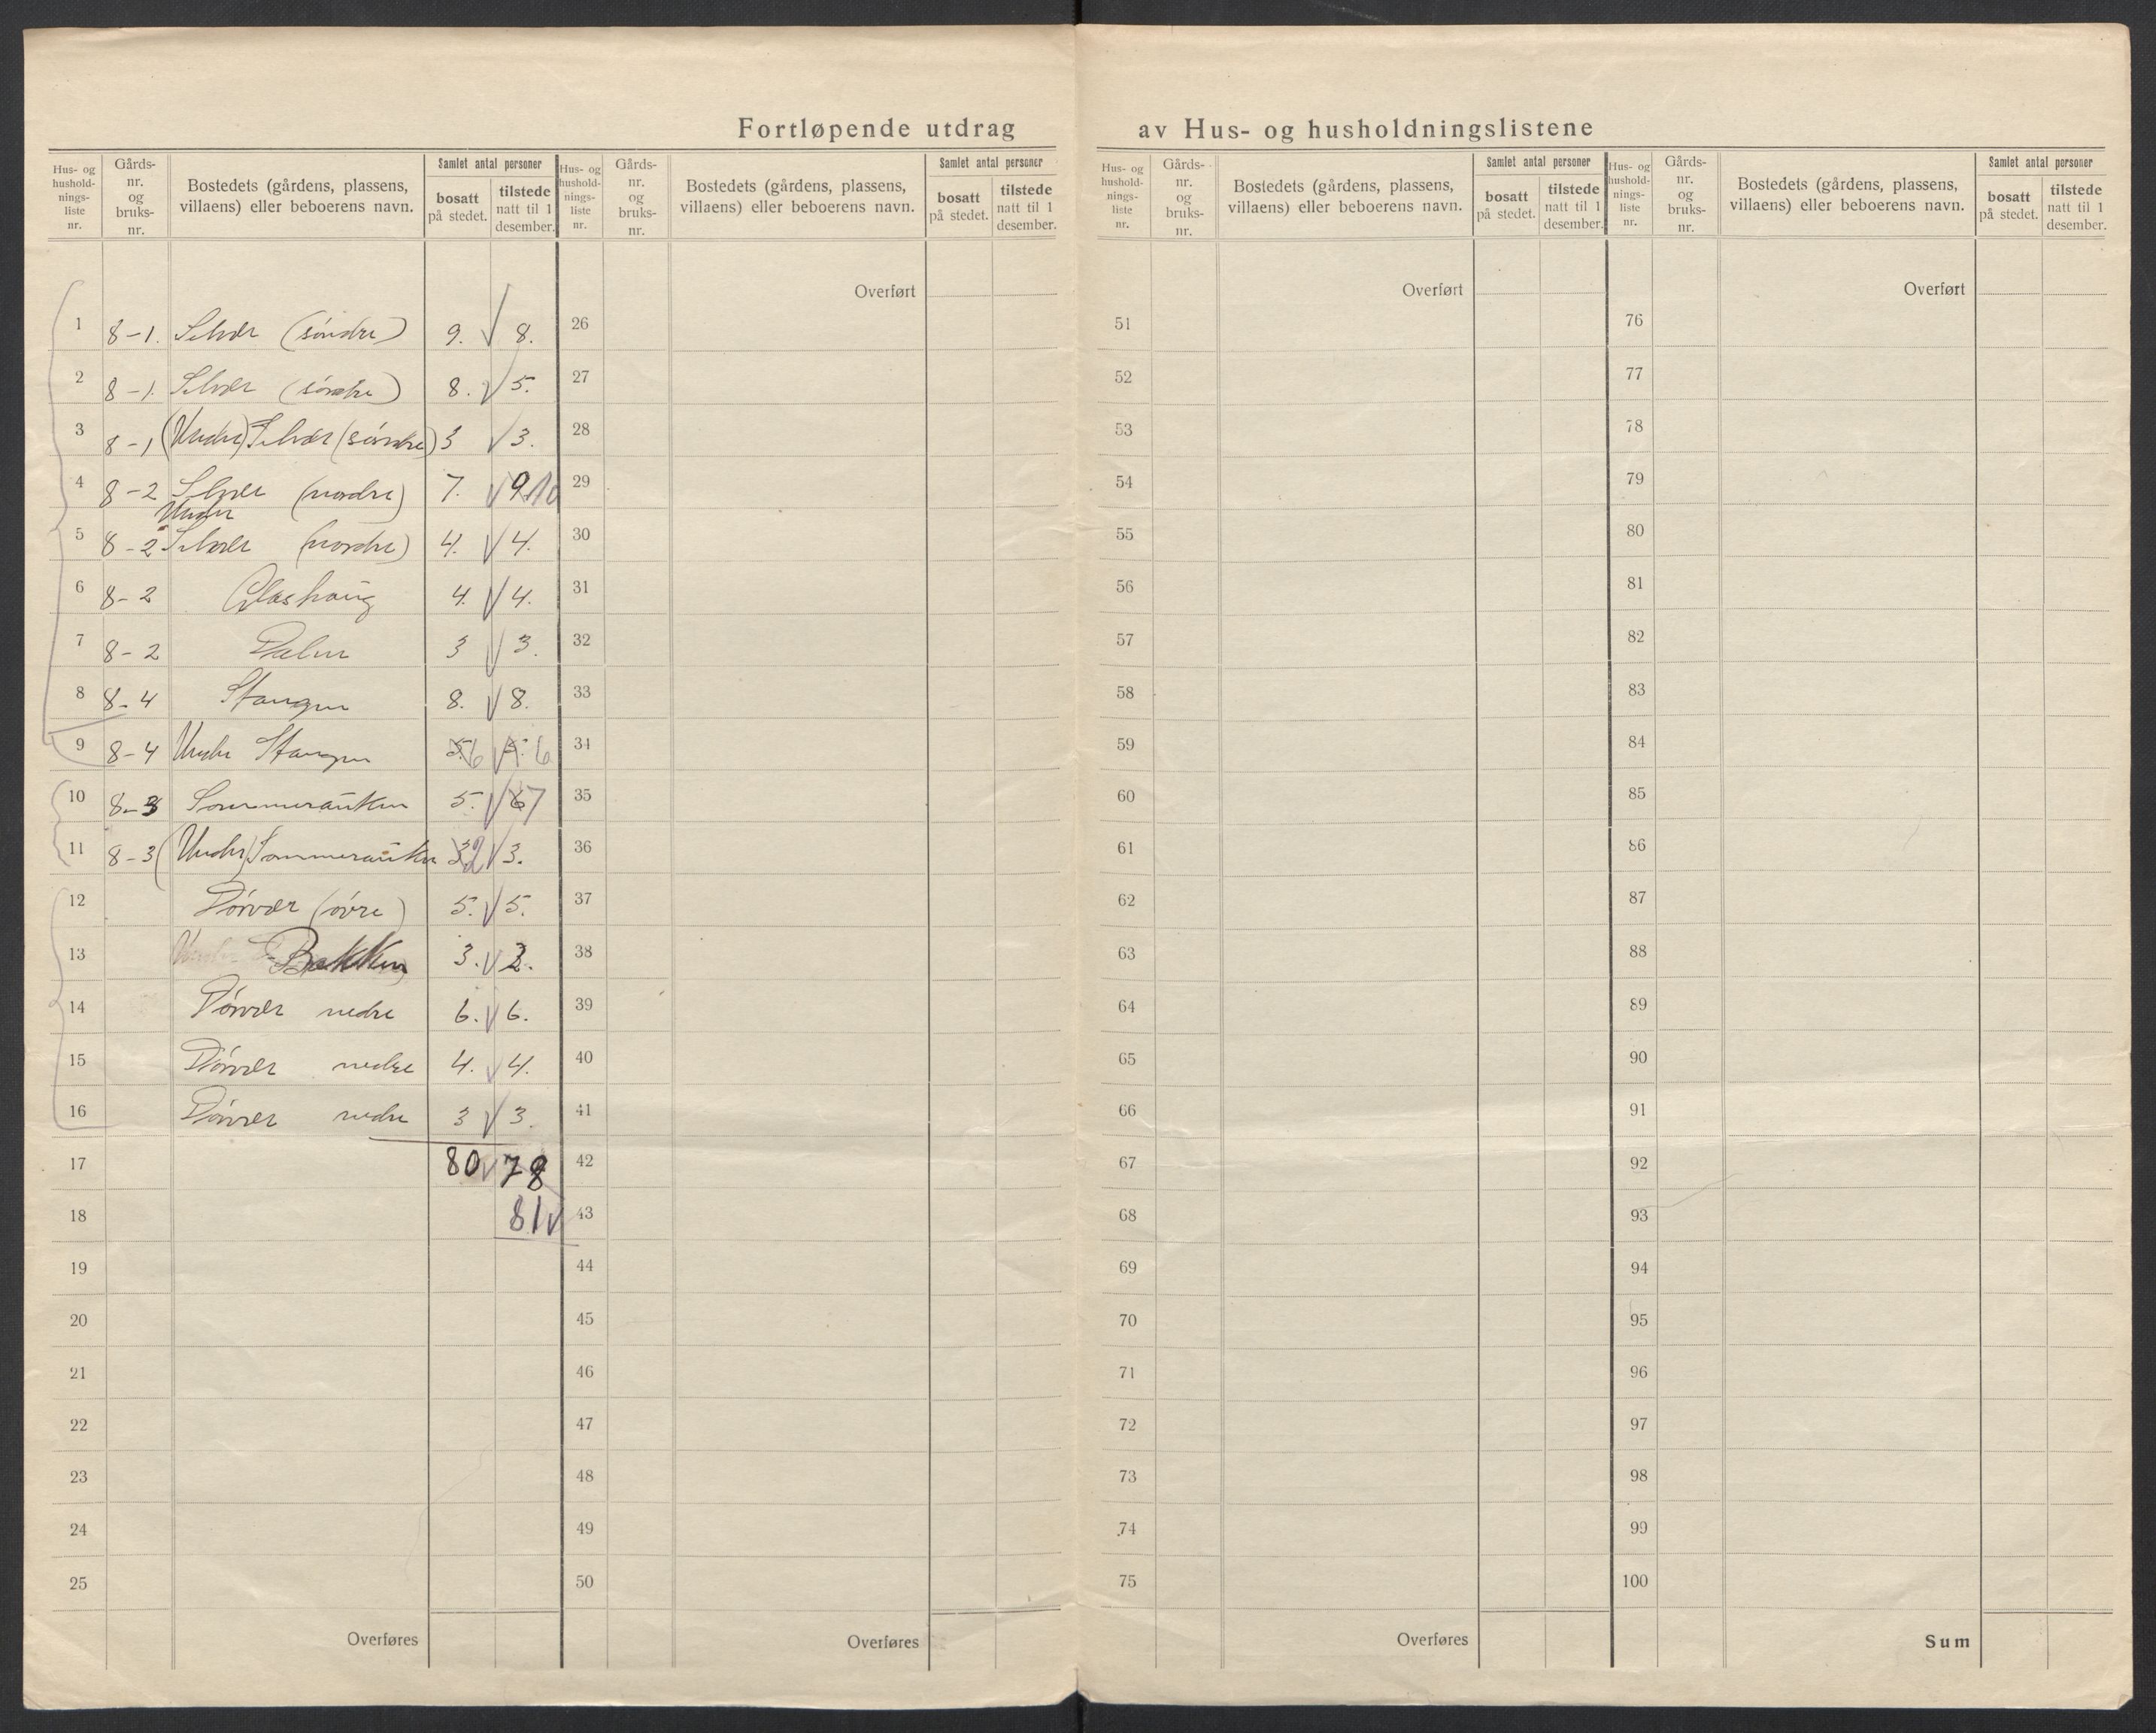 Fortløpende utdrag av Hus- og husholdningslistene
Hus- og husholdnings-liste nr. | Gårds-nr. og bruks-nr. | Bostedets (gårdens, plassens, villaens) eller beboerens navn. | Samlet antal personer | bosatt på stedet. | tilstede natt til 1 desember.
Hus- og husholdnings-liste nr. | Gårds-nr. og bruks-nr. | Bostedets (gårdens, plassens, villaens) eller beboerens navn. | Samlet antal personer | bosatt på stedet. | tilstede natt til 1 desember.
Hus- og husholdnings-liste nr. | Gårds-nr. og bruks-nr. | Bostedets (gårdens, plassens, villaens) eller beboerens navn. | Samlet antal personer | bosatt på stedet. | tilstede natt til 1 desember.
Hus- og husholdnings-liste nr. | Gårds-nr. og bruks-nr. | Bostedets (gårdens, plassens, villaens) eller beboerens navn. | Samlet antal personer | bosatt på stedet. | tilstede natt til 1 desember.
Overført
Overført
Overført
1 8-1. Selvær (söndre) 9. √ 8. 26 51 76
2 8-1. Selvær (söndre) 8. √ 5. 27 52 77
3 8-1 (Under) Selvær (söndre) 3 √ 3. 28 53 78
4 8-2 Selvær (nordre) 7. √ 9 10 29 54 79
Under
5 8-2 Selvær (nordre) 4. √ 4. 30 55 80
6 8-2 Glashaug 4. √ 4. 31 56 81
7 8-2 Dalen 3 √ 3. 32 57 82
8 8-4 Stangen 8. √ 8. 33 58 83
9 8-4 Under Stangen 5. 6 √ 5. 6 34 59 84
10 8-3 Sommerauken 5. √ 6 7 35 60 85
11 8-3 (Under) Sommerauken 3. 2 √ 3. 36 61 86
12 Dørvær (övre) 5. √ 5. 37 62 87
13 Bakken 3. √ 2. 38 63 88
14 Dørvær nedre 6. √ 6. 39 64 89
15 Dørvær nedre 4. √ 4. 40 65 90
16 Dørvær nedre 3 √ 3. 41 66 91
17 80 √ 78 42 67 92
18 81 √ 43 68 93
19 44 69 94
20 45 70 95
21 46 71 96
22 47 72 97
23 48 73 98
24 49 74 99
25 50 75 100
Overføres Overføres Overføres Sum